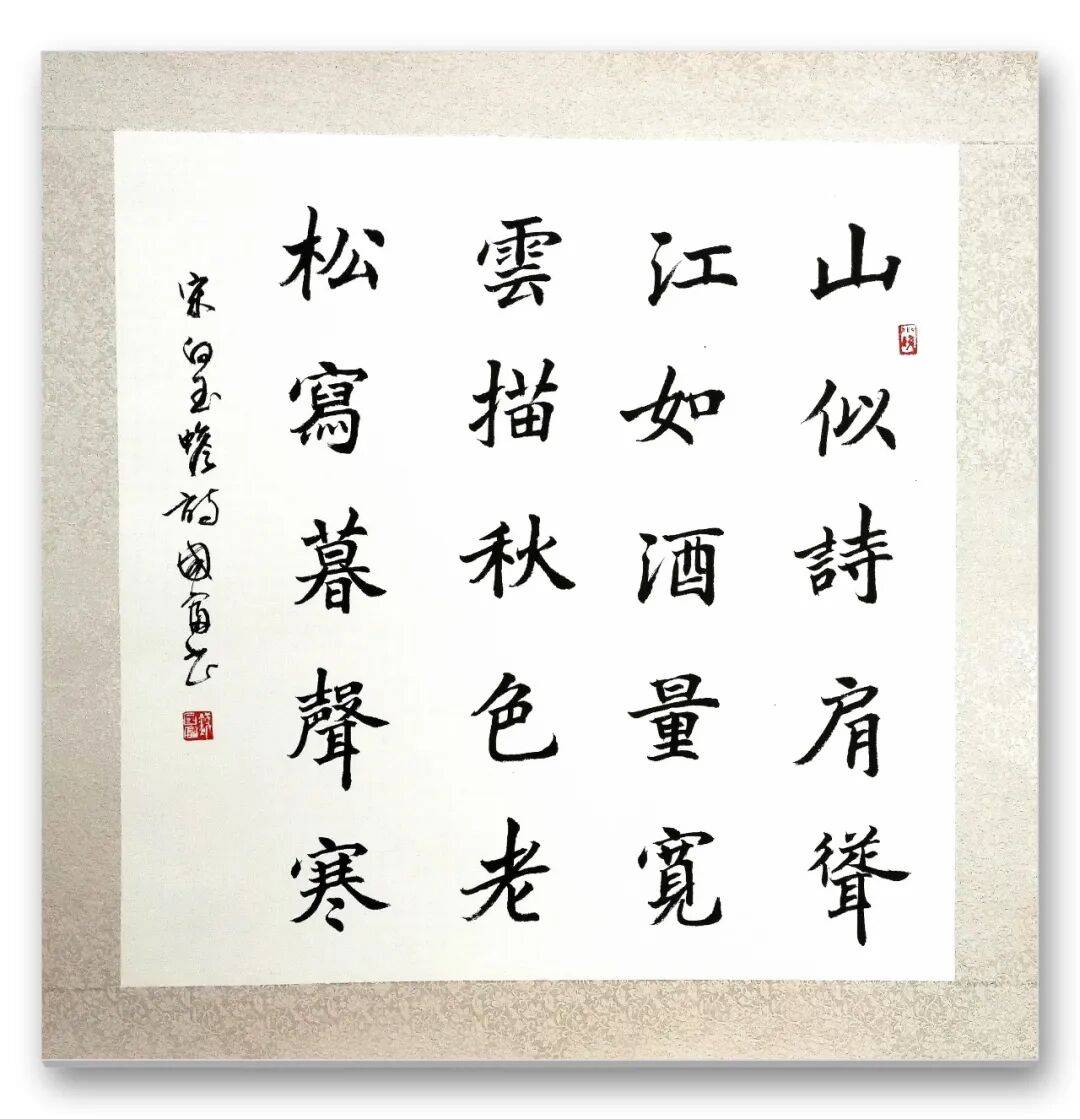 山似詩肩聳
江如酒量寬
雲描秋色老
松寫暮聲寒
宋白玉蟾詩國富书